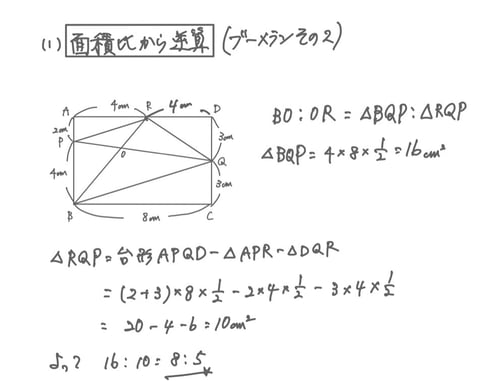 (1) 面積比から逆算 (ブーメランその2)
A 4cm R 4cm D
2cm
P
3cm
O
Q
4cm
3cm
B 8cm C
BO:OR = △BQP:△RQP
△BQP = 4×8×1/2 = 16cm²
△RQP = 台形APQD-△APR-△DQR
= (2+3)×8×1/2 - 2×4×1/2 - 3×4×1/2
= 20-4-6=10cm²
よって 16:10=8:5